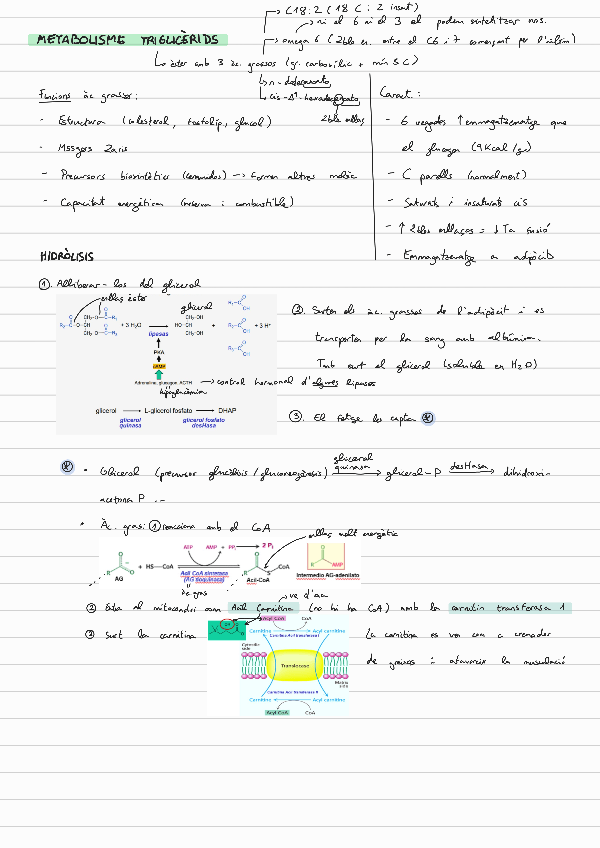 C18:2 (18 C i 2 insat)
ni el 6 ni el 3 el podem sintetitzar nos.
METABOLISME TRIGLICÈRIDS
omega 6 (2ble en. entre el C6 i 7 començant per l'últim)
èster amb 3 àc. grassos (gr. carboxílic + mín 5 C)
n-
cis-Δ⁹-hexadec
2ble enllaç
Funcions àc grassos:
- Estructura (colesterol, fosfolip, glucol)
- Missgers 2aris
- Precursors biosintètics (ceramides) → formen altres molèc
- Capacitat energètica (reserva i combustible)
Caract.:
- 6 vegades ↑ emmagatzematge que
el glucogen (9Kcal/gr)
- C parells (normalment)
- Saturats i insaturats cis
- ↑ 2bles enllaços = ↓ Ta fusió
- Emmagatzematge a adipòcit
HIDRÒLISIS
①. Alliberar-los del glicerol
enllaç èster
glicerol
+ 3 H₂O
lipasas
+
+ 3 H⁺
PKA
cAMP
Adrenalina, glucagon, ACTH → control hormonal d'algunes lipases
hipoglucèmia
glicerol → L-glicerol fosfato → DHAP
glicerol quinasa
glicerol fosfato desHasa
②. Surten els àc. grassos de l'adipòcit i es
transporten per la sang amb albúmina.
Tmb surt el glicerol (soluble en H₂O)
③. El fetge los capta *
* • Glicerol (precursor glucòlisis / gluconeogènesis) glicerol quinasa → glicerol-P desHasa → dihidroxi-
acetona P
• Àc. gras: ① reacciona amb el CoA
enllaç molt energètic
ATP AMP + PPi → 2 Pi
AG + HS—CoA
Acil CoA sintetasa
(AG tioquinasa)
Acil-CoA
Intermedio AG-adenilato
de gras
ve d'aa
② Entra al mitocondri com Acil Carnitina (no hi ha CoA) amb la carnitin transferasa 1
③ Surt la carnitina
Acyl CoA CoA
Carnitine Acyl carnitine
Carnitina Acil transferasa I
Cytosolic side
Translocase
Matrix side
Carnitina Acil transferasa II
Carnitine Acyl carnitine
Acyl CoA CoA
La carnitina es ven com a cremador
de greixos i afavoreix la musculació